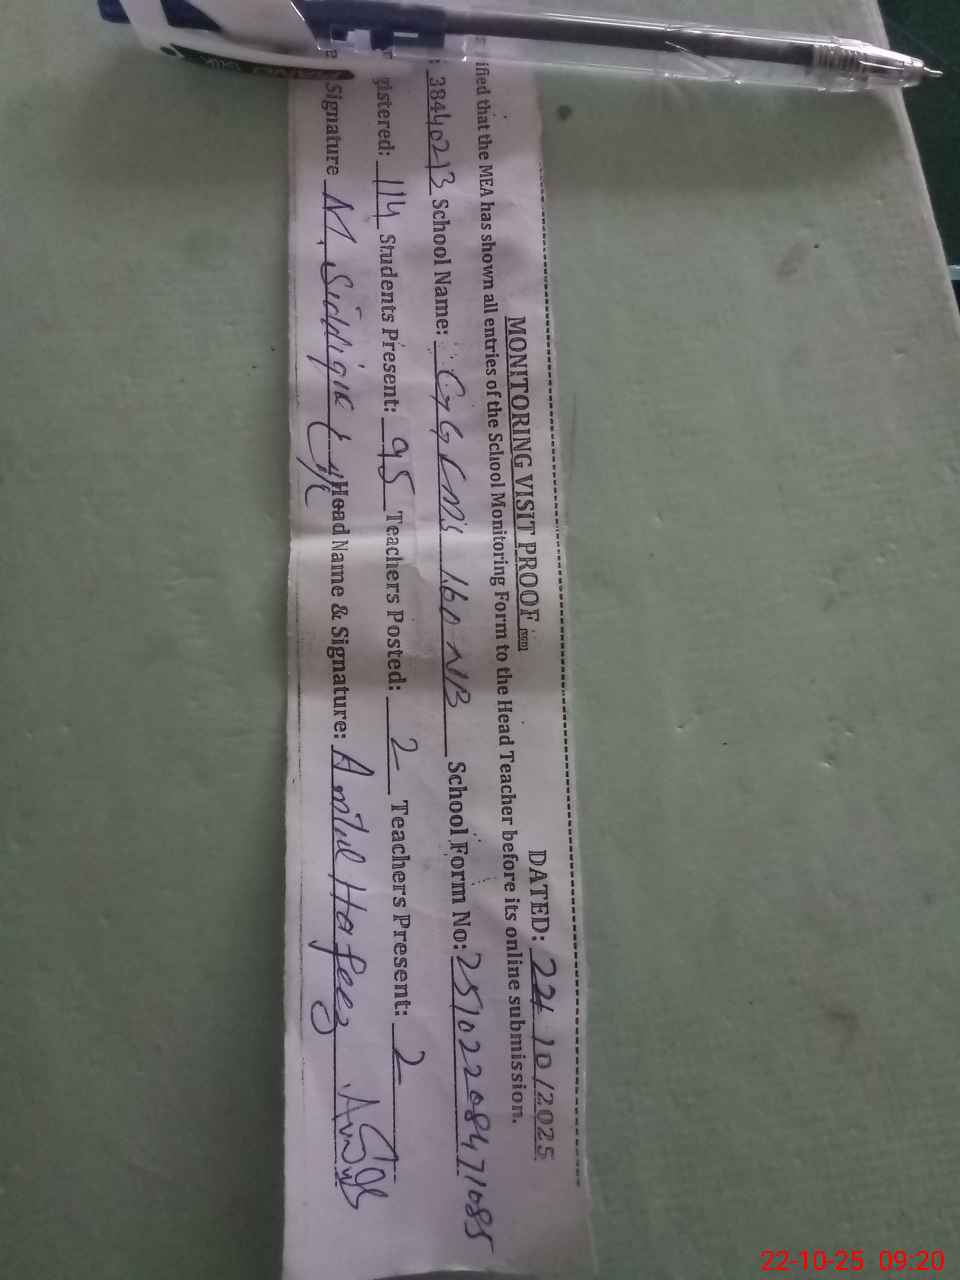 MONITORING VISIT PROOF
DATED: 22/10/2025
ified that the MEA has shown all entries of the School Monitoring Form to the Head Teacher before its online submission.
: 38440213 School Name: GGCMS 160 NB School Form No: 25102208471085
gistered: 114 Students Present: 95 Teachers Posted: 2 Teachers Present: 2
e Signature M. Siddique Head Name & Signature: Amtul Hafeez
22-10-25 09:20